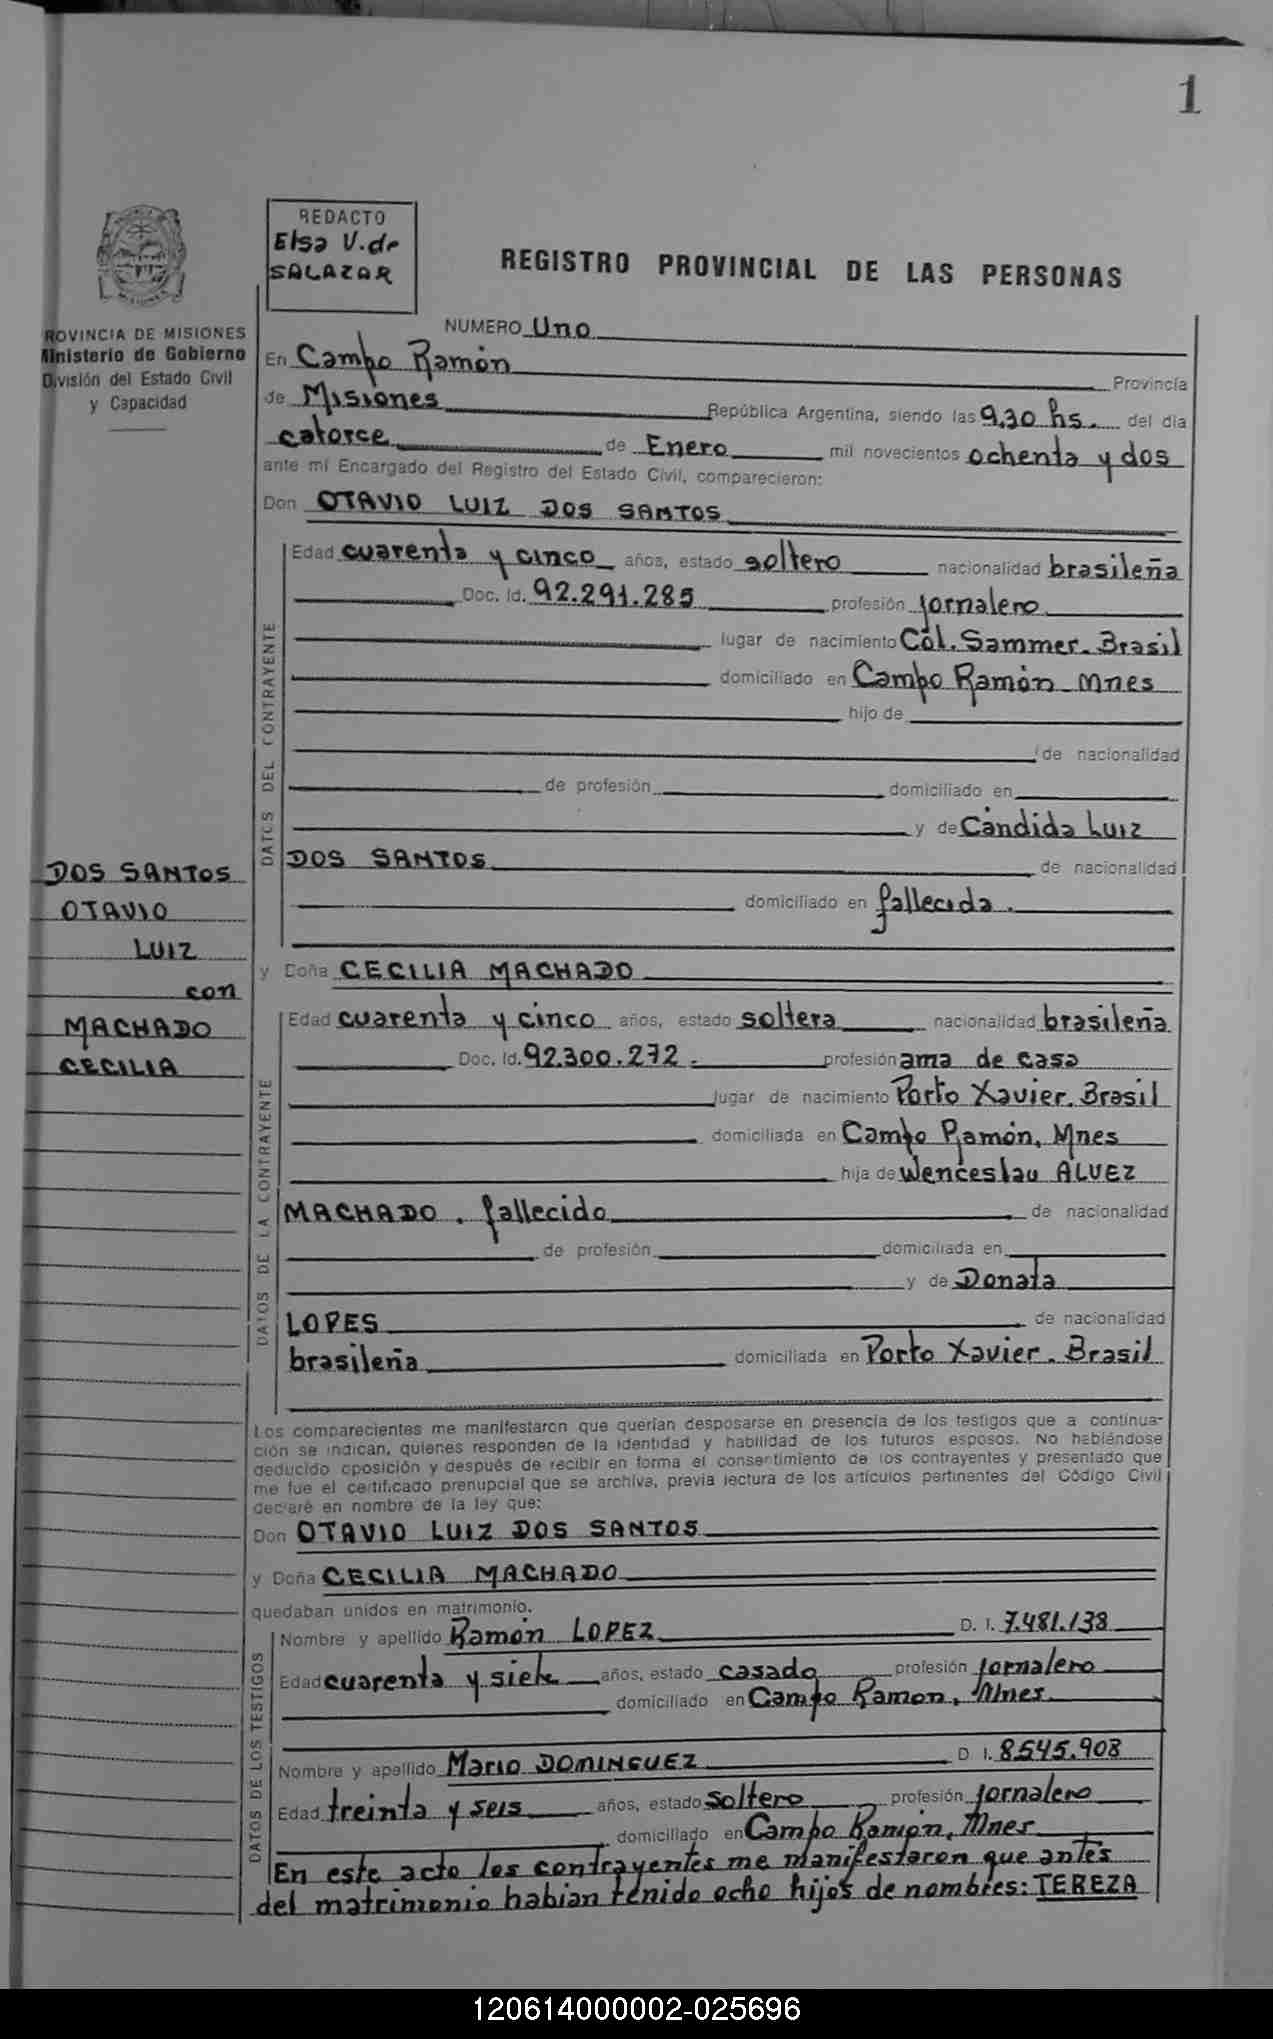 1
REDACTO
Elsa V. de
SALAZAR
REGISTRO PROVINCIAL DE LAS PERSONAS
ROVINCIA DE MISIONES
Ministerio de Gobierno
División del Estado Civil
y Capacidad
NUMERO Uno
En Campo Ramón Provincia
de Misiones República Argentina, siendo las 9,30 hs. del día
catorce de Enero mil novecientos ochenta y dos
ante mí Encargado del Registro del Estado Civil, comparecieron:
Don OTAVIO LUIZ DOS SANTOS
DATOS DEL CONTRAYENTE
Edad cuarenta y cinco años, estado soltero nacionalidad brasileña
Doc. Id. 92.291.285 profesión jornalero
lugar de nacimiento Col. Sammer. Brasil
domiciliado en Campo Ramón Mnes
hijo de
de nacionalidad
de profesión domiciliado en
y de Cándida Luiz
DOS SANTOS de nacionalidad
domiciliado en fallecida.
DOS SANTOS
OTAVIO
LUIZ
con
MACHADO
CECILIA
y Doña CECILIA MACHADO
DATOS DE LA CONTRAYENTE
Edad cuarenta y cinco años, estado soltera nacionalidad brasileña
Doc. Id. 92.300.272. profesión ama de casa
lugar de nacimiento Porto Xavier. Brasil
domiciliada en Campo Ramón, Mnes
hija de Wenceslau ALVEZ
MACHADO. fallecido de nacionalidad
de profesión domiciliada en
y de Donata
LOPES de nacionalidad
brasileña domiciliada en Porto Xavier. Brasil
Los comparecientes me manifestaron que querían desposarse en presencia de los testigos que a continua-
ción se indican, quienes responden de la identidad y habilidad de los futuros esposos. No habiéndose
deducido oposición y después de recibir en forma el consentimiento de los contrayentes y presentado que
me fue el certificado prenupcial que se archiva, previa lectura de los artículos pertinentes del Código Civil
declaré en nombre de la ley que:
Don OTAVIO LUIZ DOS SANTOS
y Doña CECILIA MACHADO
quedaban unidos en matrimonio.
DATOS DE LOS TESTIGOS
Nombre y apellido Ramón LOPEZ D. I. 7.481.138
Edad cuarenta y siete años, estado casado profesión jornalero
domiciliado en Campo Ramon, Mnes.
Nombre y apellido Mario DOMINGUEZ D. I. 8545.908
Edad treinta y seis años, estado soltero profesión jornalero
domiciliado en Campo Ramón, Mnes
En este acto los contrayentes me manifestaron que antes
del matrimonio habían tenido ocho hijos de nombres: TEREZA
120614000002-025696